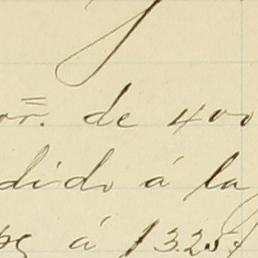 or. de 400
dido á la
á $ 3.25